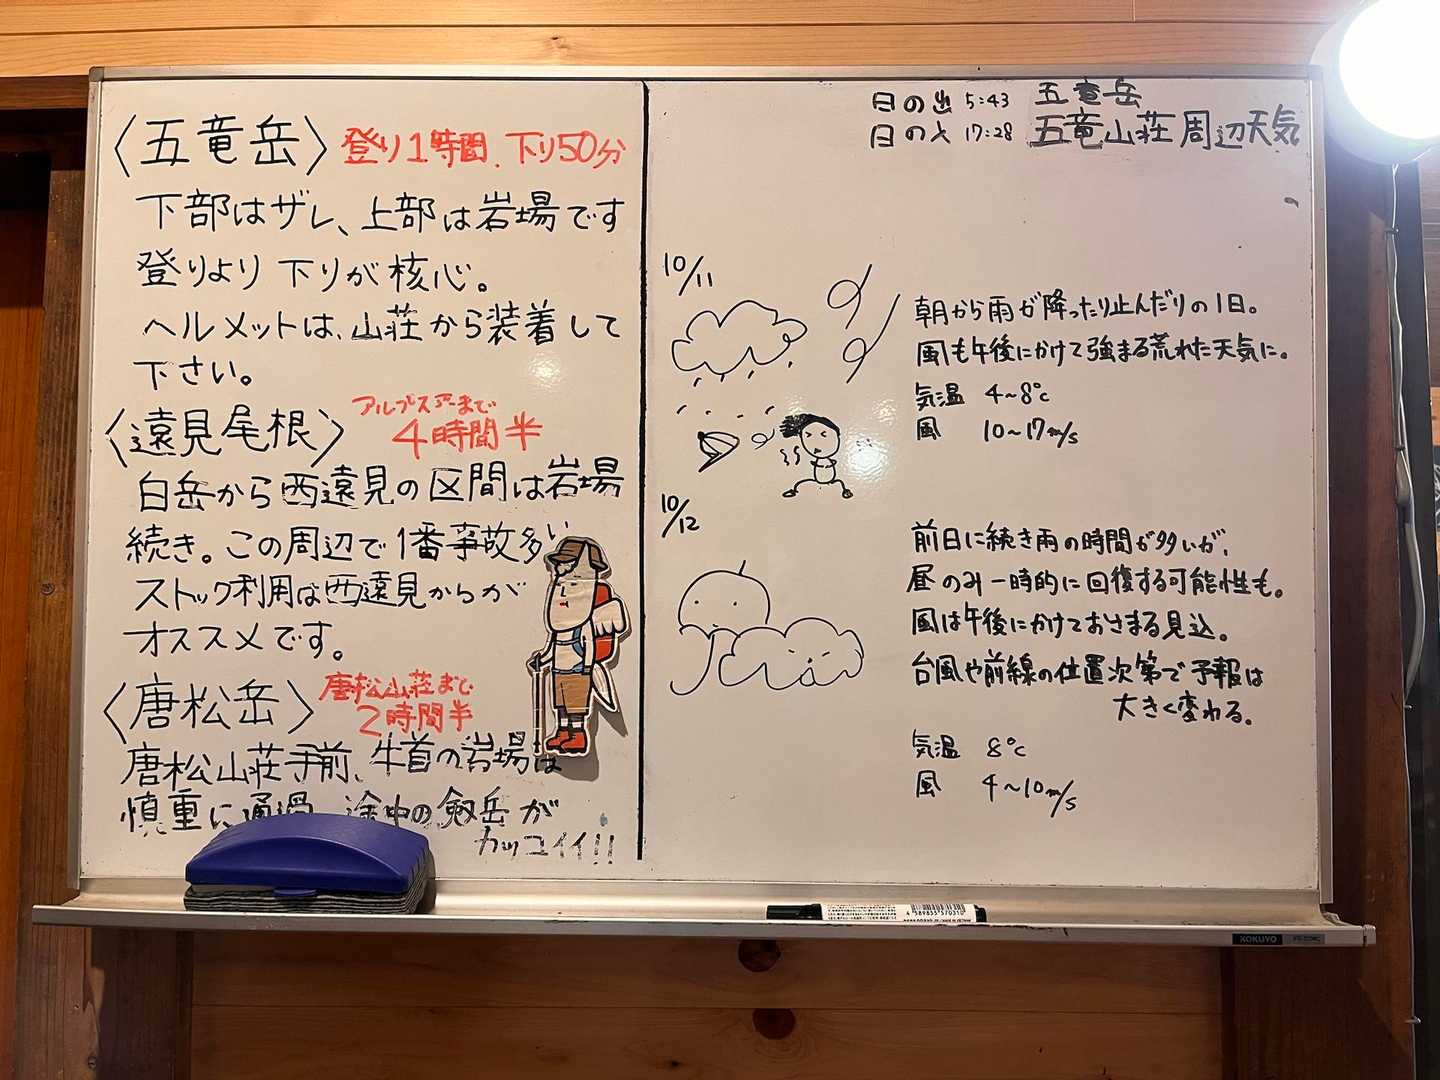 〈五竜岳〉登り1時間、下り50分
下部はザレ、上部は岩場です
登りより下りが核心。
ヘルメットは、山荘から装着して
下さい。
〈遠見尾根〉アルプス平まで
4時間半
白岳から西遠見の区間は岩場
続き。この周辺で1番事故多い
ストック利用は西遠見からが
オススメです。
〈唐松岳〉唐松山荘まで
2時間半
唐松山荘手前、牛首の岩場は
慎重に通過 途中の剱岳が
カッコイイ!!
日の出 5:43 五竜岳
日の入 17:28 五竜山荘周辺天気
10/11
朝から雨が降ったり止んだりの1日。
風も午後にかけて強まる荒れた天気に。
気温 4~8℃
風 10~17m/s
10/12
前日に続き雨の時間が多いが、
昼のみ一時的に回復する可能性も。
風は午後にかけておさまる見込。
台風や前線の位置次第で予報は
大きく変わる。
気温 8℃
風 4~10m/s
4 589855 570310
KOKUYO